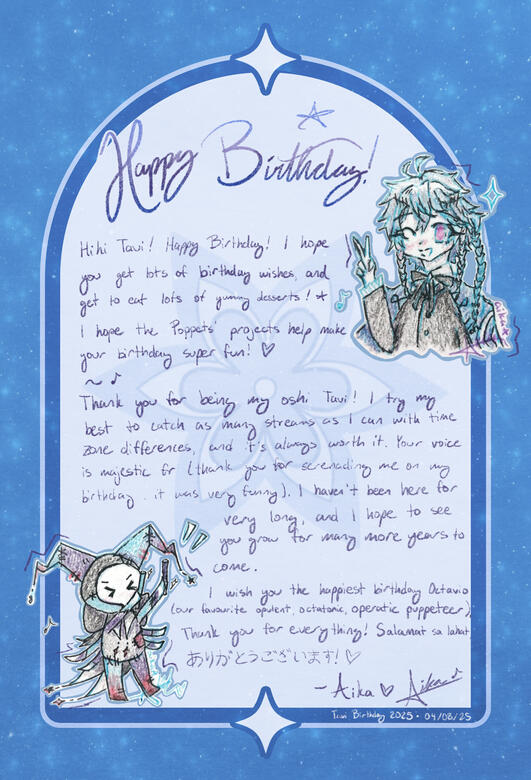 Happy Birthday!
Hihi Tavi! Happy Birthday! I hope
you get lots of birthday wishes, and
get to eat lots of yummy desserts! ★
I hope the Poppets' projects help make
your birthday super fun! ♡
~ ♪
Thank you for being my oshi Tavi! I try my
best to catch as many streams as I can with time
zone differences, and it's always worth it. Your voice
is majestic fr (thank you for serenading me on my
birthday. it was very funny). I haven't been here for
very long, and I hope to see
you grow for many more years to
come.
I wish you the happiest birthday Octavio
(our favourite opulent, octatonic, operatic puppeteer)
Thank you for everything! Salamat sa lahat
ありがとうございます! ♡
- Aika ♡ Aika ♪
Tavi Birthday 2025 • 04/08/25
aika★